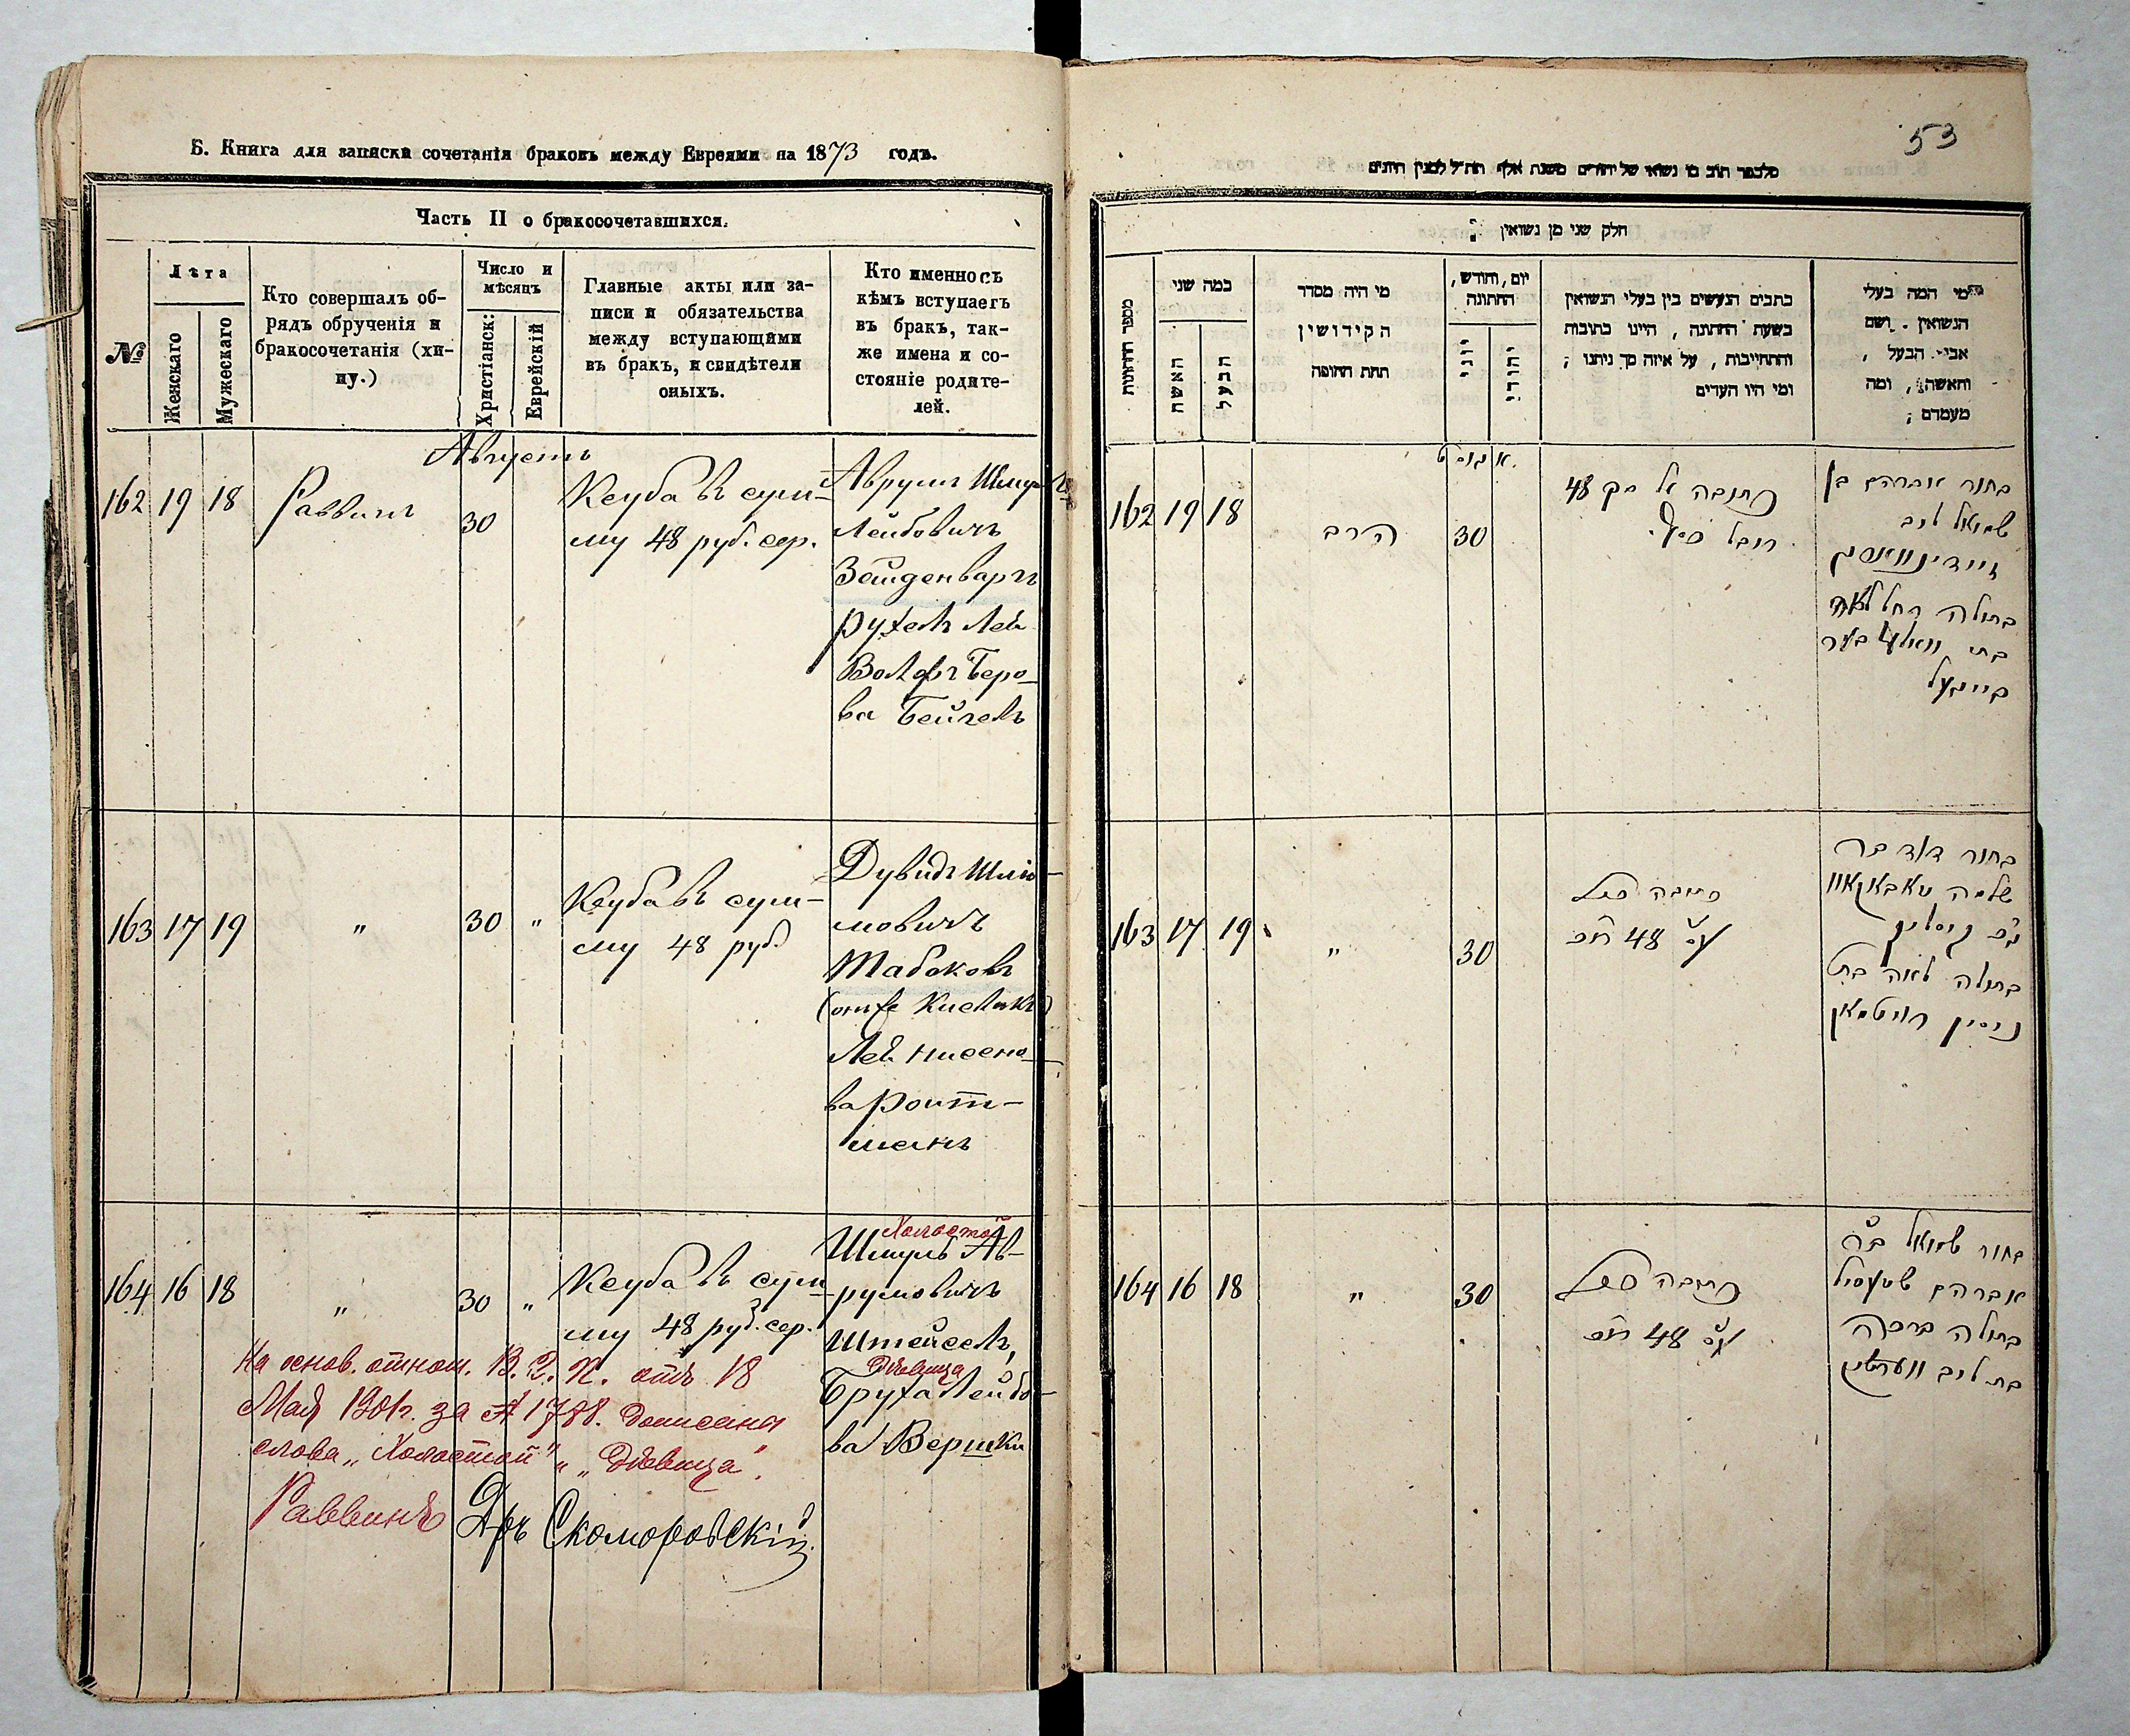 Б. Книга для записки сочетанія браковъ между Евреями на 1873 годъ.
Часть II о бракосочетавшихся.
№
Лѣта
Женскаго
Мужескаго
Кто совершалъ об-
рядъ обрученія и
бракосочетанія (хи-
пу.)
Число и
мѣсяцъ
Христіанск:
Еврейскій
Главные акты или за-
писи и обязательства
между вступающими
въ бракъ, и свидѣтели
оныхъ.
Кто именно съ
кѣмъ вступаетъ
въ бракъ, так-
же имена и со-
стояніе родите-
лей.
Августъ
162 19 18 Раввинъ 30
Кеуба въ сум-
му 48 руб. сер.
Аврумъ Шмул
Лейбовичъ
Зейденваргъ
Рухель Лея
Волфъ Беро-
ва Бейгель
163 17 19 " 30 "
Кеуба въ сум-
му 48 руб
Дувидъ Шлио-
мовичъ
Табаковъ
Лея Нисено-
ва Роит-
манъ
164 16 18 " 30 "
Кеуба въ сум
му 48 руб. сер.
Холостой
Шмуль Ав-
румовичъ
Штейсель,
Дѣвица
Бруха Лейбо-
ва Вершки
На основ. отнош. В. О. К. отъ 18
Мая 1901г. за № 1788. дописана
слова „Холостой" „Дѣвица".
Раввинъ Дръ Скоморовскій
53
מלבפר תוב מו נשוא של יהודים משנת אלף תת״ל למנין היונים
חלק שני מן נשואין
מספר החתונות
כמה שני
האשה
הבעל
מי היה מסדר
הקידושין
תחת החופה
יום, וחודש,
החתונה
יוני
יהודי
כתבים הנעשים בין בעלי הנשואין
בשעת החתונה, היינו כתובות
והתחייבות, על איזה סך ניתנו;
ומי היו העדים
מי המה בעלי
הנשואין. ושם
אבי הבעל,
והאשה, ומה
מעמדם;
אוגוסט
162 19 18 הרב 30
כתובה על סך 48
רובל כסף
בחור אברהם בן
שמואל ליב
זיידינווארג
בתולה רחל לאה
בת וואלף בער
בייגעל
163 17 19 " 30
כתובה
48
בחור דוד בר
שלמה טאבאקאוו
בתולה לאה בת
ניסין רויטמאן
164 16 18 " 30
כתובה
48
בחור שמואל בר
אברהם שטעסיל
בתולה ברכה
בת ליב ווערשקי